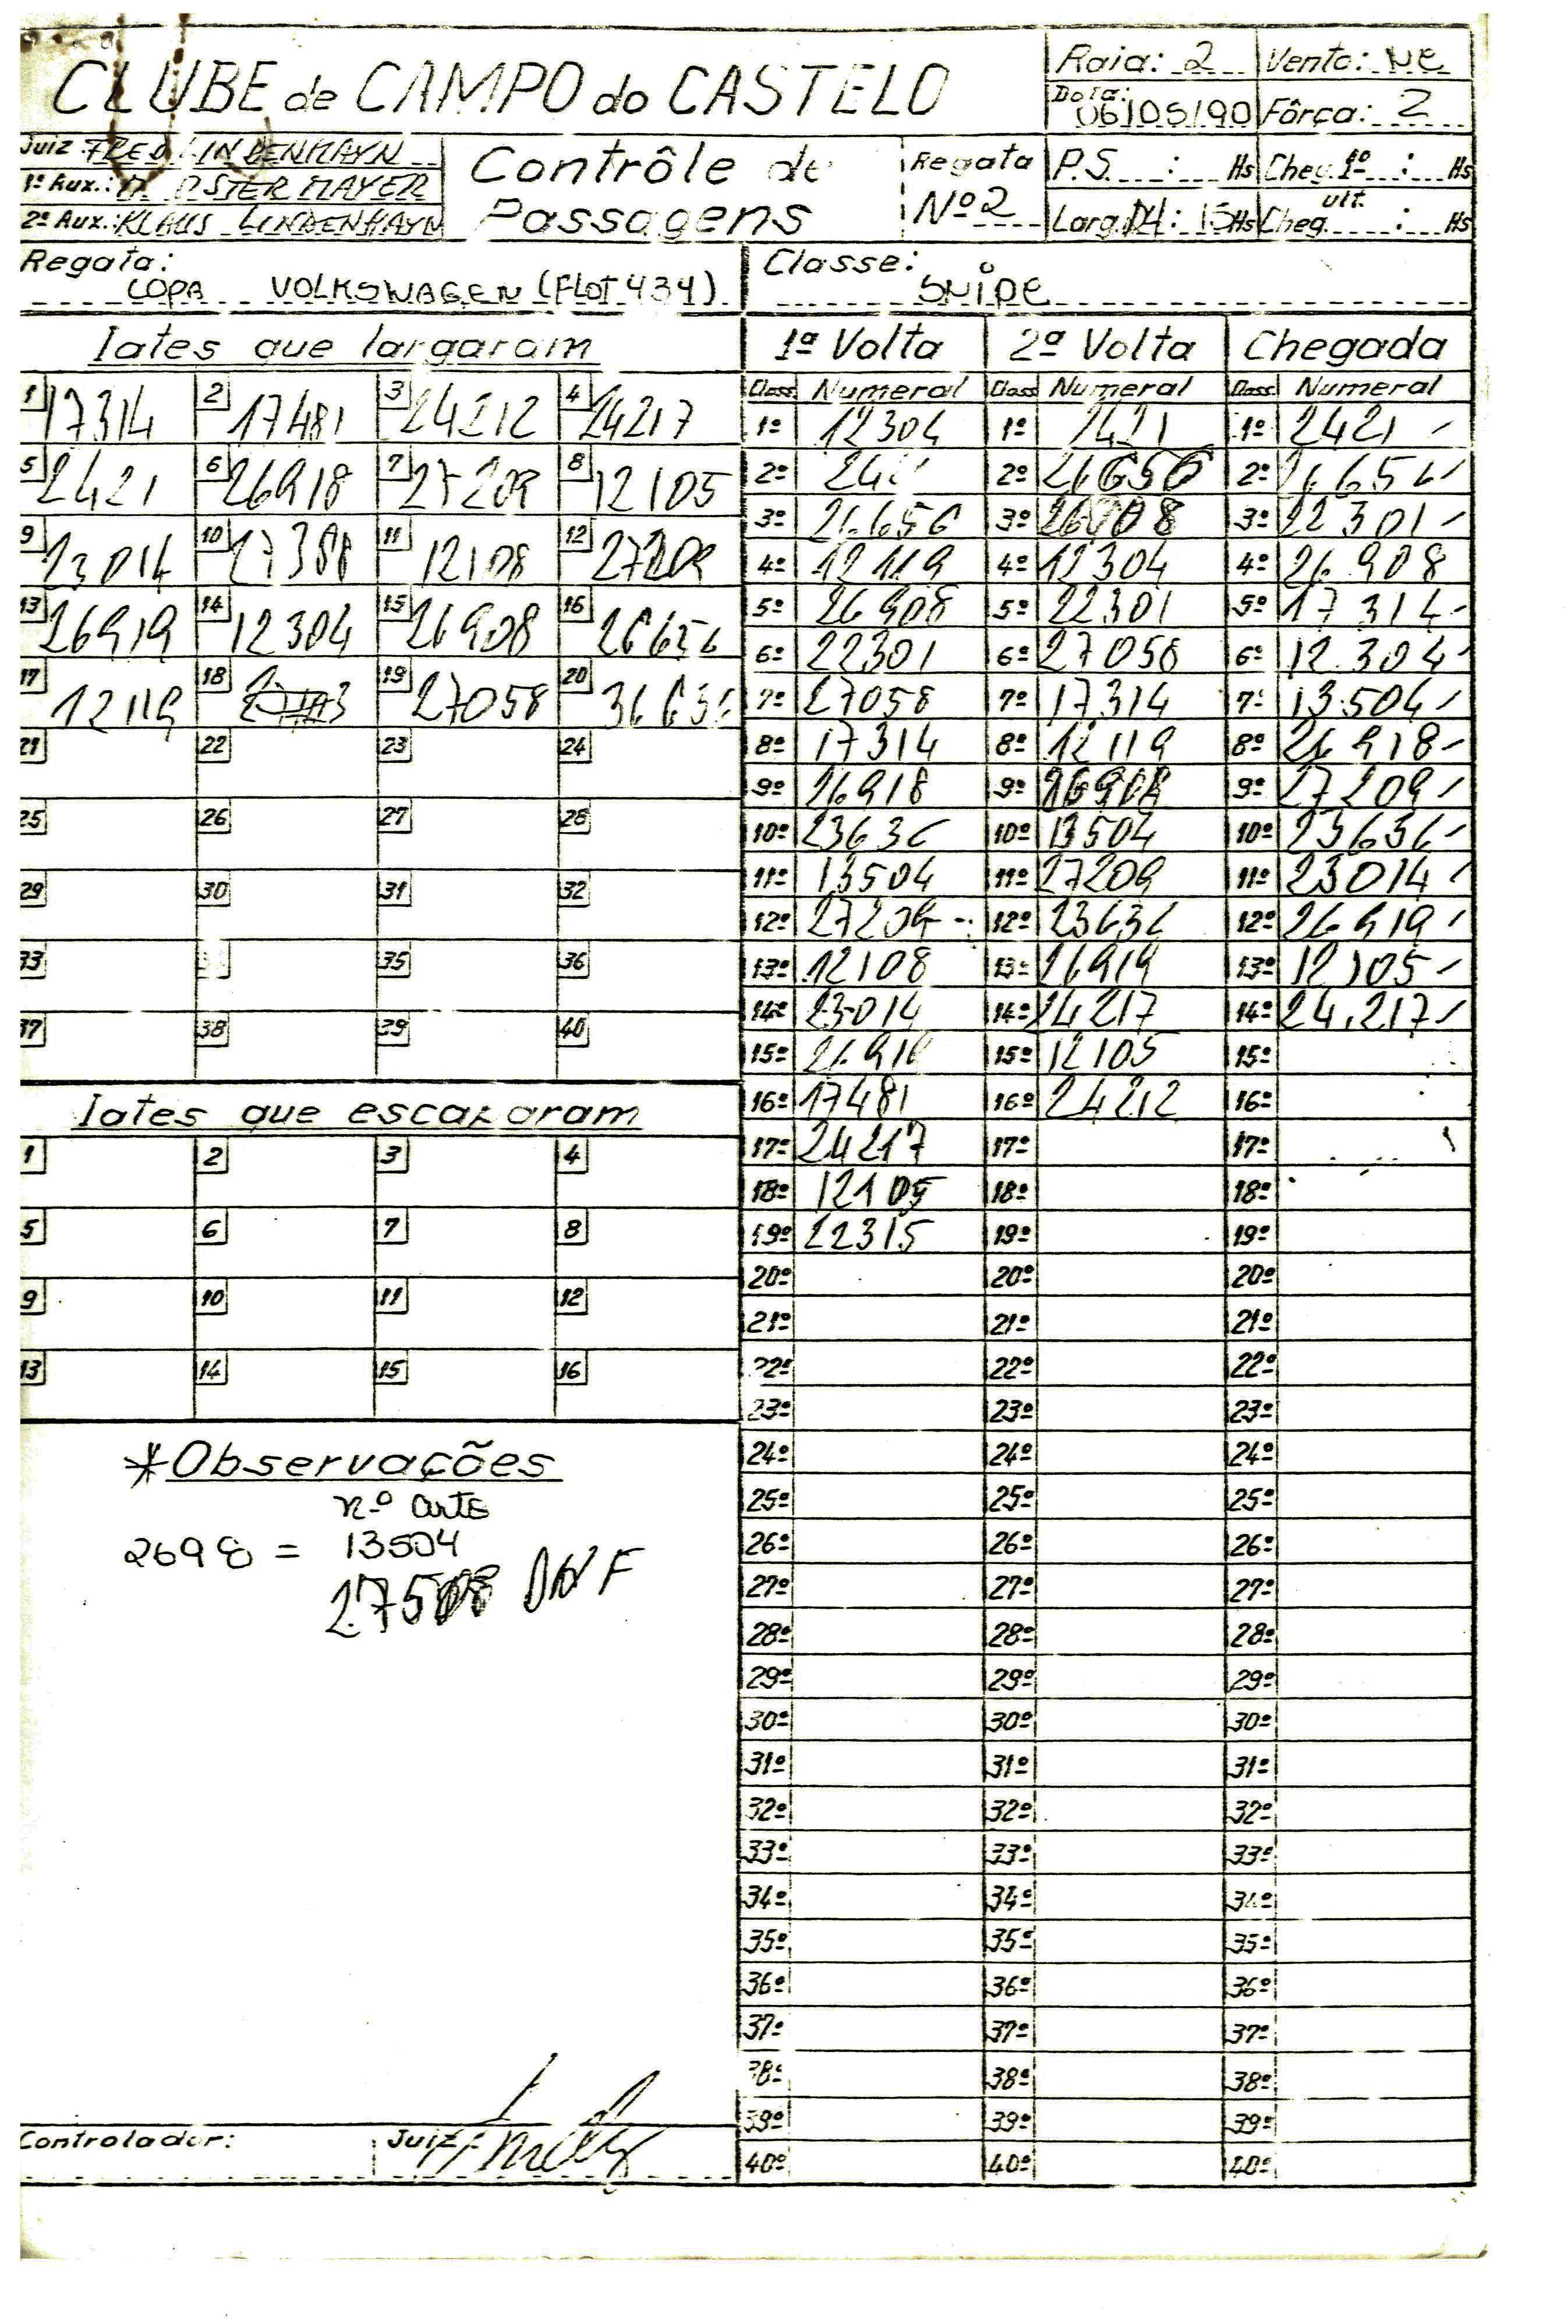 CLUBE de CAMPO do CASTELO
Raia: 2 Vento: NE
Data: 06/05/90 Fôrça: 2
Juiz: FRED LINDENHAYN
1º Aux.: OSTERMAYER
2º Aux.: KLAUS LINDENHAYN
Contrôle de
Passagens
Regata
Nº 2
P.S. : Hs Cheg. 1º : Hs
Larg. 14: 15 Hs Cheg. ult. : Hs
Regata:
COPA VOLKSWAGEN (FLOT 434)
Classe:
SNIPE
Iates que largaram
1 17314 2 17481 3 24212 4 24217
5 2421 6 26918 7 27209 8 12105
9 23014 10 27388 11 12108 12 27209
13 26919 14 12304 15 26908 16 26656
17 12119 18 19 27058 20 36636
21 22 23 24
25 26 27 28
29 30 31 32
33 35 36
37 38 39 40
Iates que escaparam
1 2 3 4
5 6 7 8
9 10 11 12
13 14 15 16
*Observações
n.º arte
2698 = 13504
DNF
Controlador: Juiz:
1ª Volta 2ª Volta Chegada
Class. Numeral Class. Numeral Class. Numeral
1º 12304 1º 2421 1º 2421
2º 2º 26656 2º 26656
3º 26656 3º 26908 3º 22301
4º 12119 4º 12304 4º 26908
5º 26908 5º 22301 5º 17314
6º 22301 6º 27058 6º 12304
7º 27058 7º 17314 7º 13504
8º 17314 8º 12119 8º 26918
9º 26918 9º 9º 27209
10º 23636 10º 13504 10º 23636
11º 13504 11º 27209 11º 23014
12º 27209 12º 23636 12º 26919
13º 12108 13º 26919 13º 12105
14º 23014 14º 24217 14º 24217
15º 15º 12105 15º
16º 17481 16º 24212 16º
17º 24217 17º 17º
18º 12105 18º 18º
19º 22315 19º 19º
20º 20º 20º
21º 21º 21º
22º 22º 22º
23º 23º 23º
24º 24º 24º
25º 25º 25º
26º 26º 26º
27º 27º 27º
28º 28º 28º
29º 29º 29º
30º 30º 30º
31º 31º 31º
32º 32º 32º
33º 33º 33º
34º 34º 34º
35º 35º 35º
36º 36º 36º
37º 37º 37º
38º 38º 38º
39º 39º 39º
40º 40º 40º